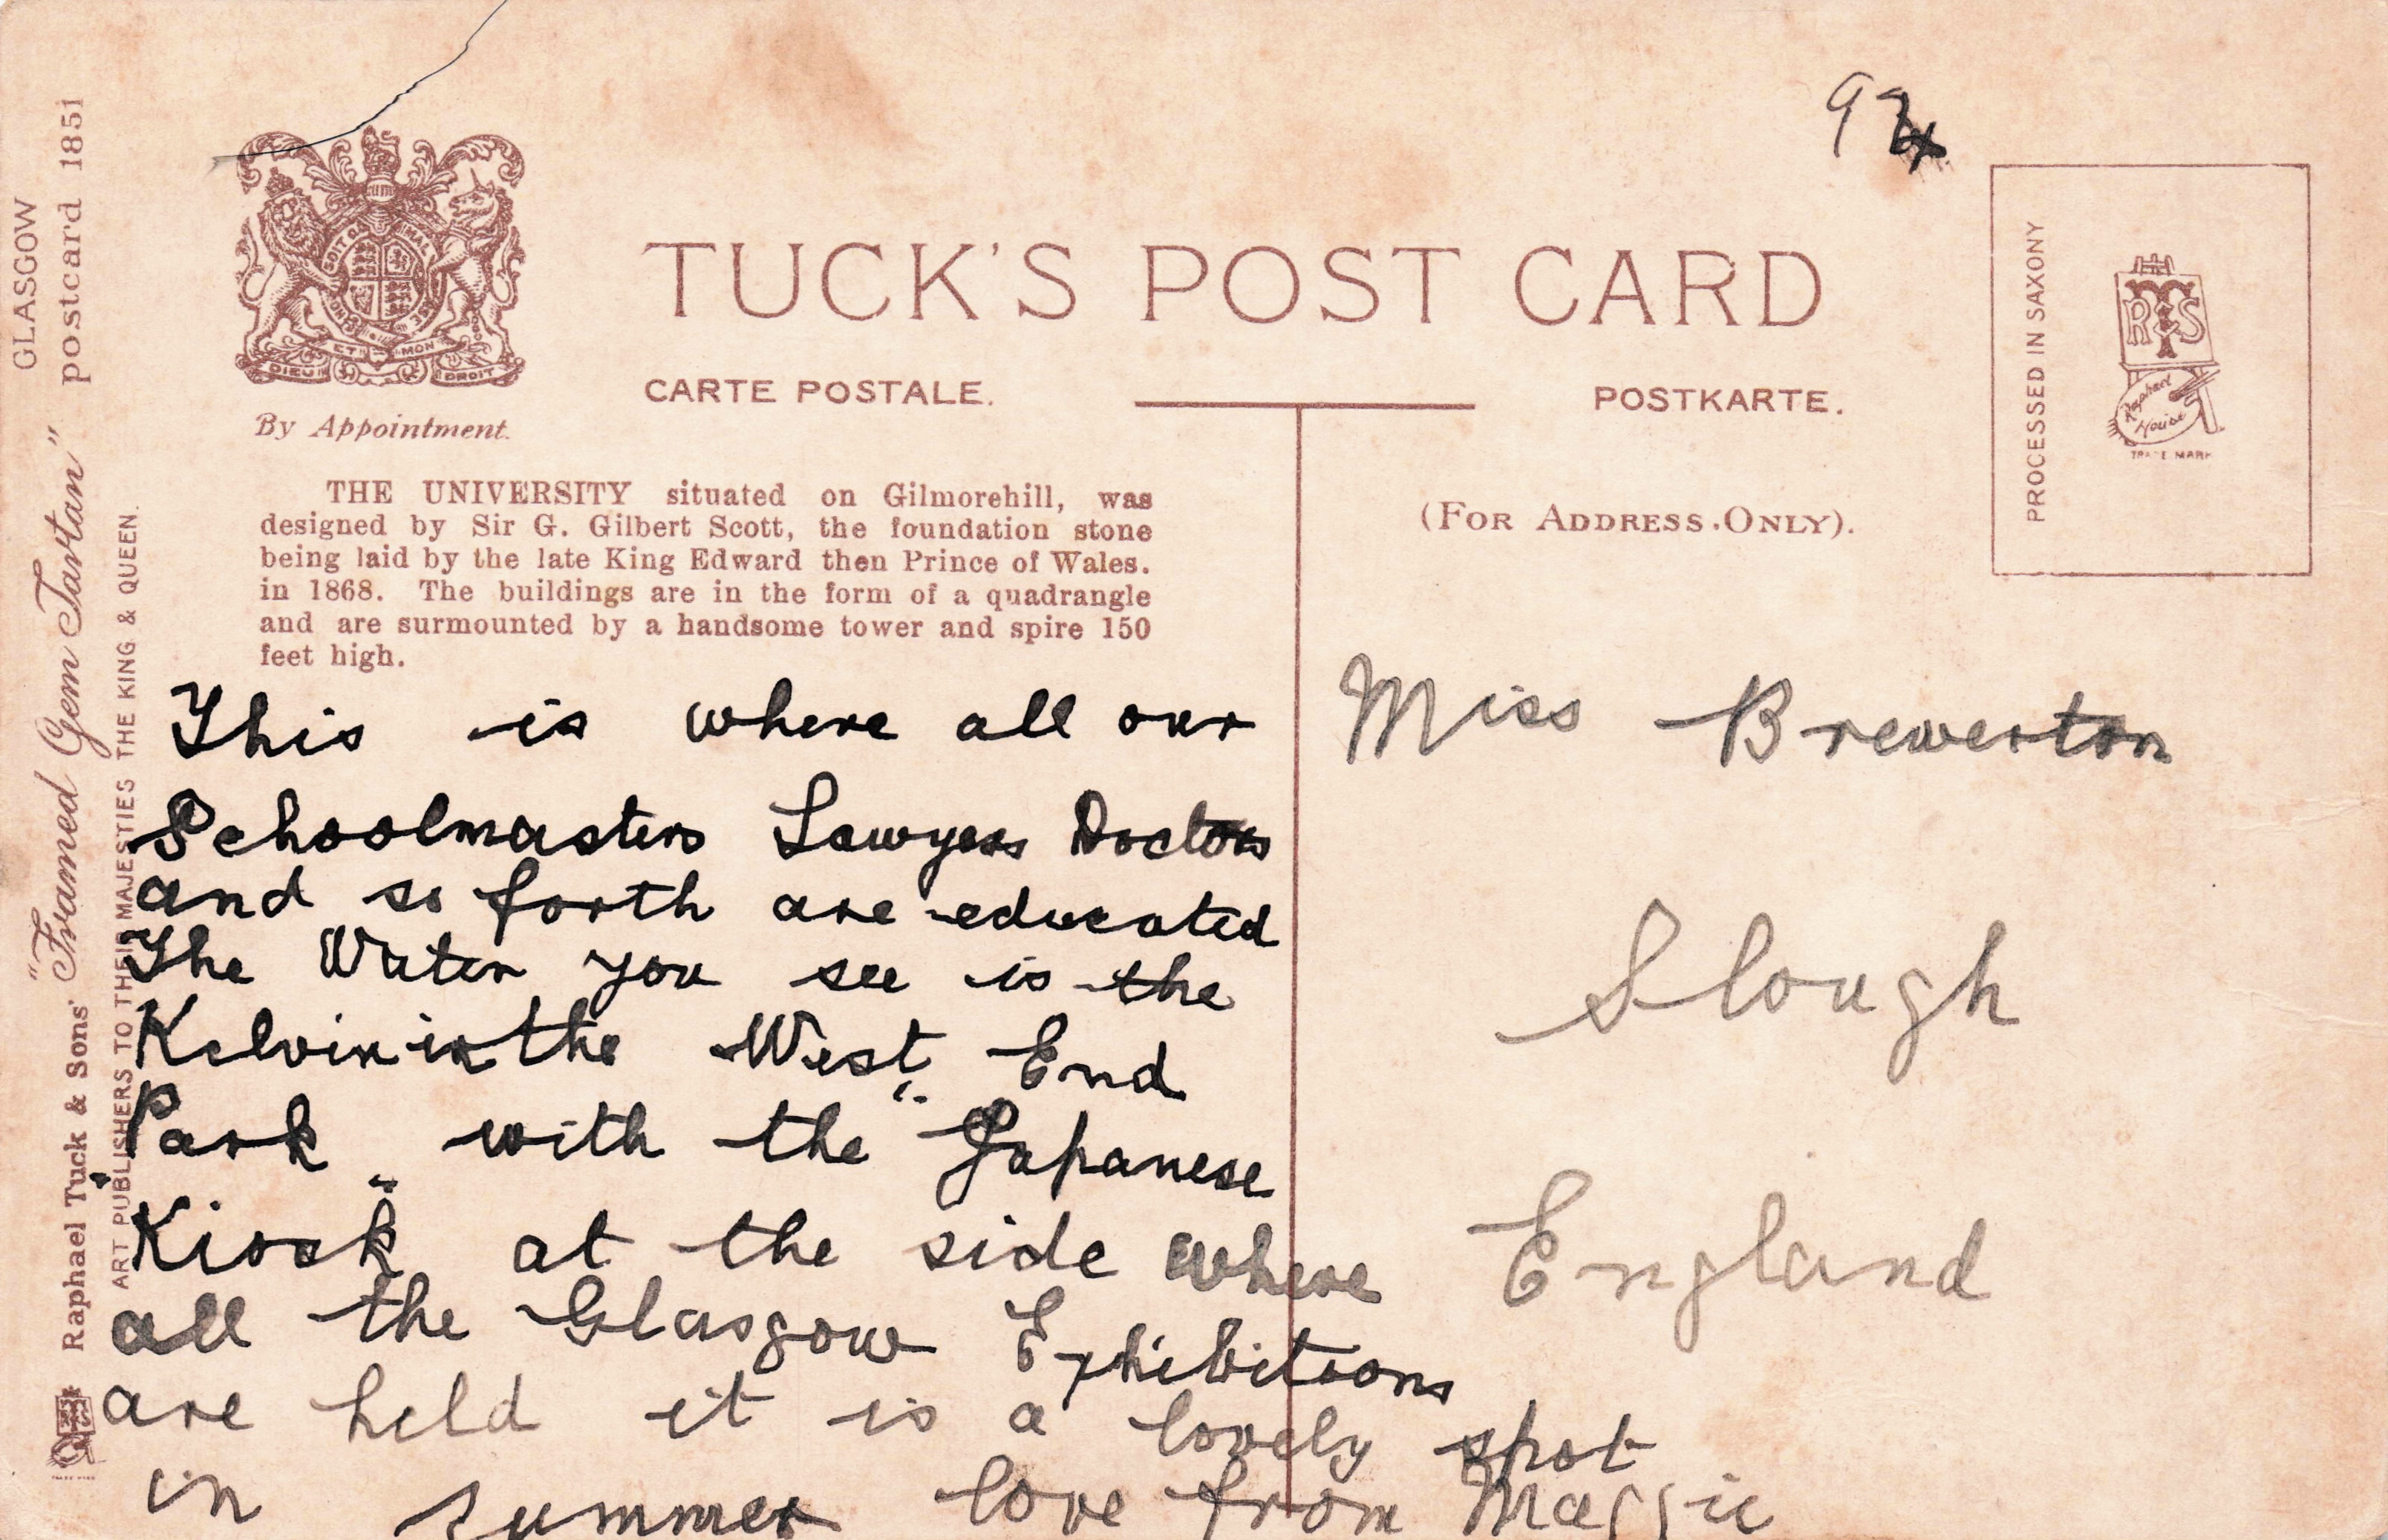 GLASGOW
"Framed Gem Tartan" postcard 1851
Raphael Tuck & Sons'
ART PUBLISHERS TO THEIR MAJESTIES THE KING & QUEEN.
TRADE MARK
DIEU ET MON DROIT
By Appointment.
TUCK'S POST CARD
CARTE POSTALE.
POSTKARTE.
(FOR ADDRESS ONLY).
PROCESSED IN SAXONY
RTS
&
Raphael
House
TRADE MARK
THE UNIVERSITY situated on Gilmorehill, was
designed by Sir G. Gilbert Scott, the foundation stone
being laid by the late King Edward then Prince of Wales.
in 1868. The buildings are in the form of a quadrangle
and are surmounted by a handsome tower and spire 150
feet high.
This is where all our
Schoolmasters Lawyers Doctors
and so forth are educated
The Water you see is the
Kelvin in the West End
Park with the "Japanese
Kiosk" at the side where
all the Glasgow Exhibitions
are held it is a lovely spot
in summer love from Maggie
Miss Brewerton
Slough
England